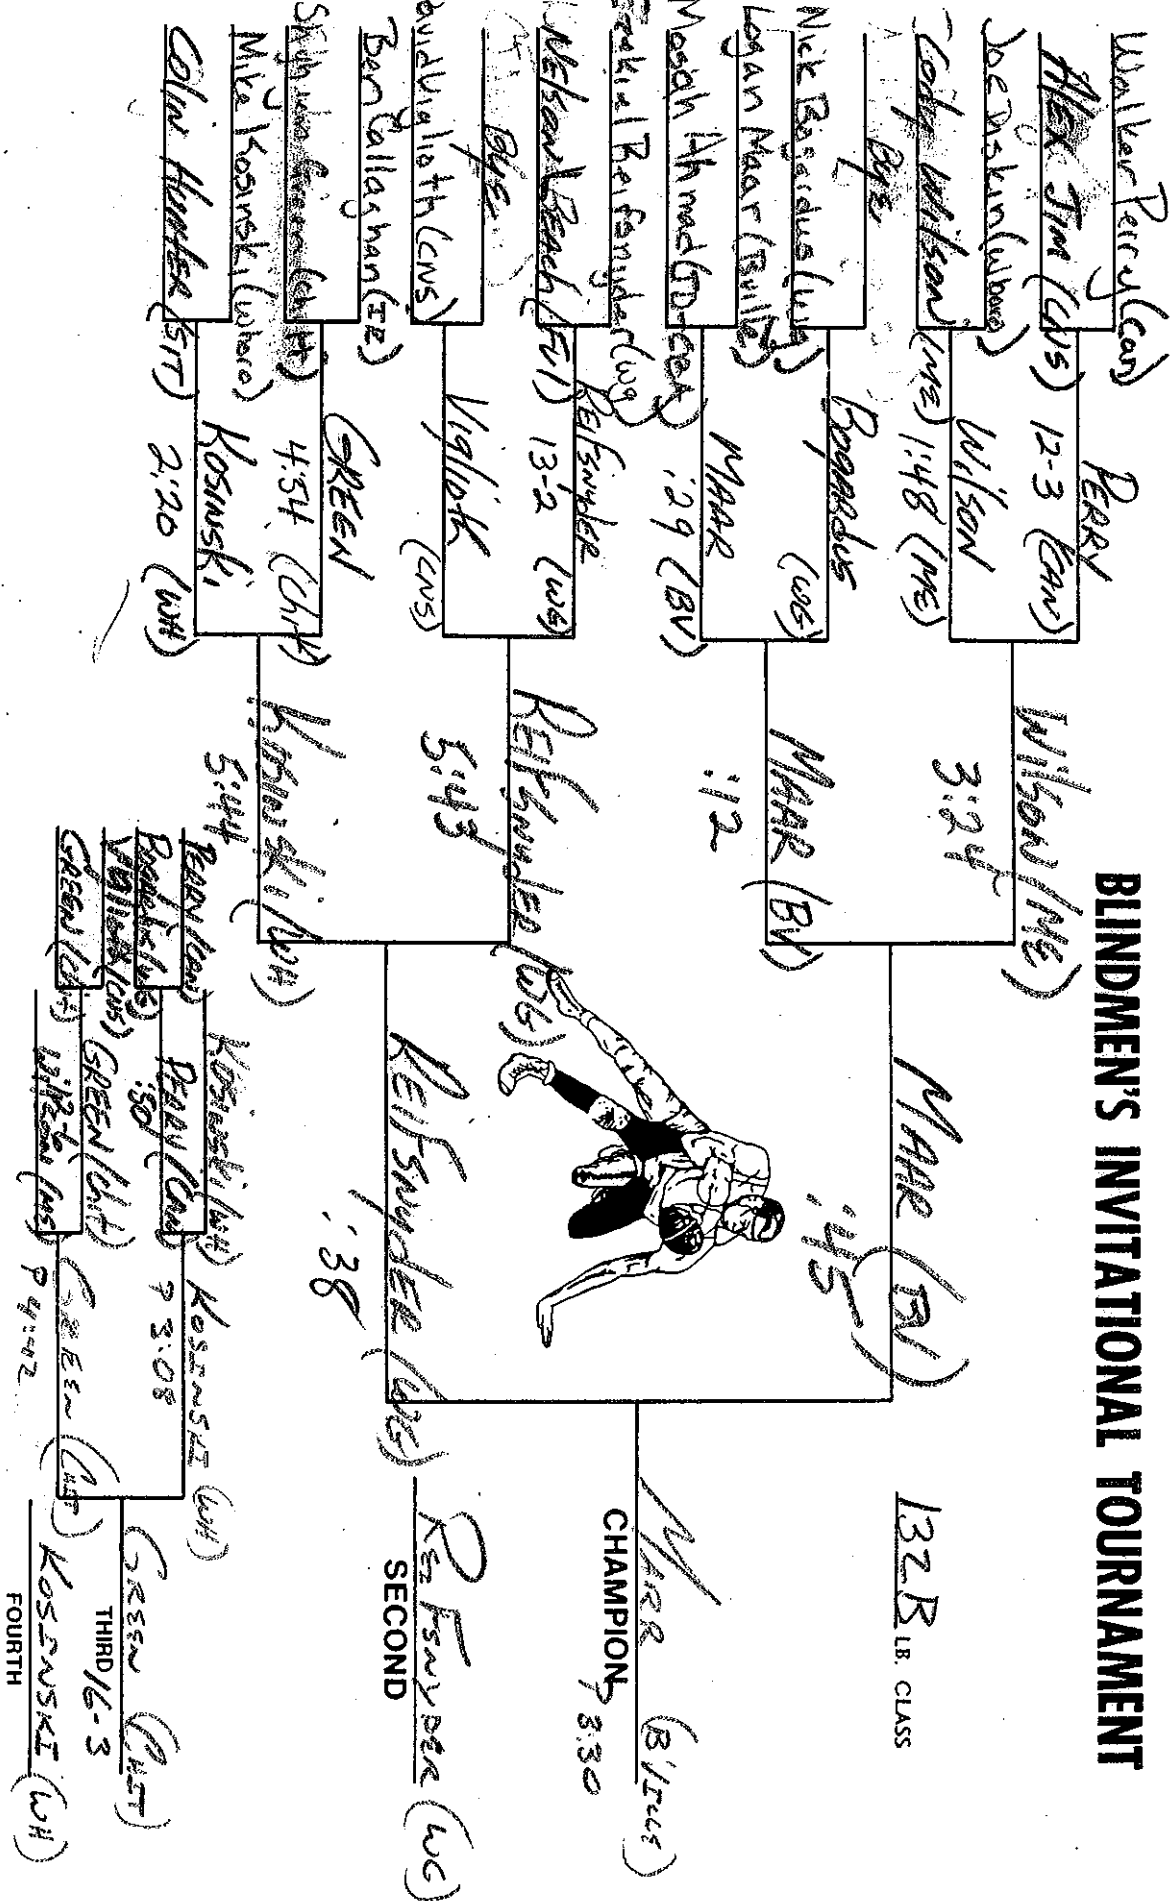 BLINDMEN'S INVITATIONAL TOURNAMENT
132B LB. CLASS
Walker Perry (Can)
Alex Jim (CNS)
Joe Diskin (Whoro)
Cody Wilson (ME)
Bye
Nick Bogardus (WG)
Logan Maar (Bville)
Mosah Ahmad (JD-CBA)
Ezekial Reifsnyder (WG)
Nelson Beach (Ful)
Bye
David Viglioth (CNS)
Ben Callaghan (IE)
Green (Chitt)
Mike Kosinski (Whoro)
Colin Hunter (SIT)
PERRY
12-3 (CAN)
Wilson
1:48 (ME)
Bogardus
(WG)
MAAR
:29 (BV)
Reifsnyder
13-2 (WG)
Viglioth
(CNS)
GREEN
4:54 (Chit)
Kosinski
2:20 (WH)
Wilson (ME)
3:24
MAAR (BV)
:12
Reifsnyder (WG)
5:43
Kosinski (WH)
5:44
MAAR (BV)
:45
Reifsnyder (WG)
:38
MAAR (B'VILLE)
CHAMPION
P 3:30
REIFSNYDER (WG)
SECOND
PERRY (Can)
Bogardus (WG)
Viglioth (CNS)
GREEN (Chit)
Kosinski (WH)
PERRY (Can)
:50
GREEN (Chit)
12-6
Wilson (ME)
KOSINSKI (WH)
P 3:08
GREEN (CHIT)
P 4:42
GREEN (CHIT)
THIRD 16-3
KOSINSKI (WH)
FOURTH